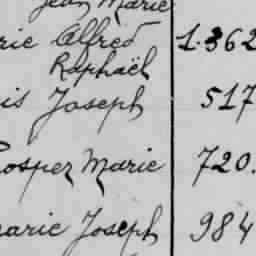 Jean Marie
rie Alfred 1.362
Raphaël
is Joseph 517
osper Marie 720.
arie Joseph 984